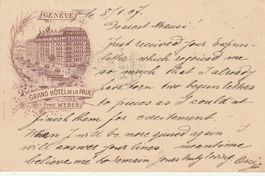 GENÈVE
le 8/1. 07.
Dearest Mausi!
Just received your
letter which rejoiced me
so much that I already
have torn two begun letters
to pieces as I could not
finish them for excitement.
When I will be more quiet again I
will answer your lines meantime
believe me to remain yours truly loving
GRAND HÔTEL DE LA PAIX
Fred. WEBER